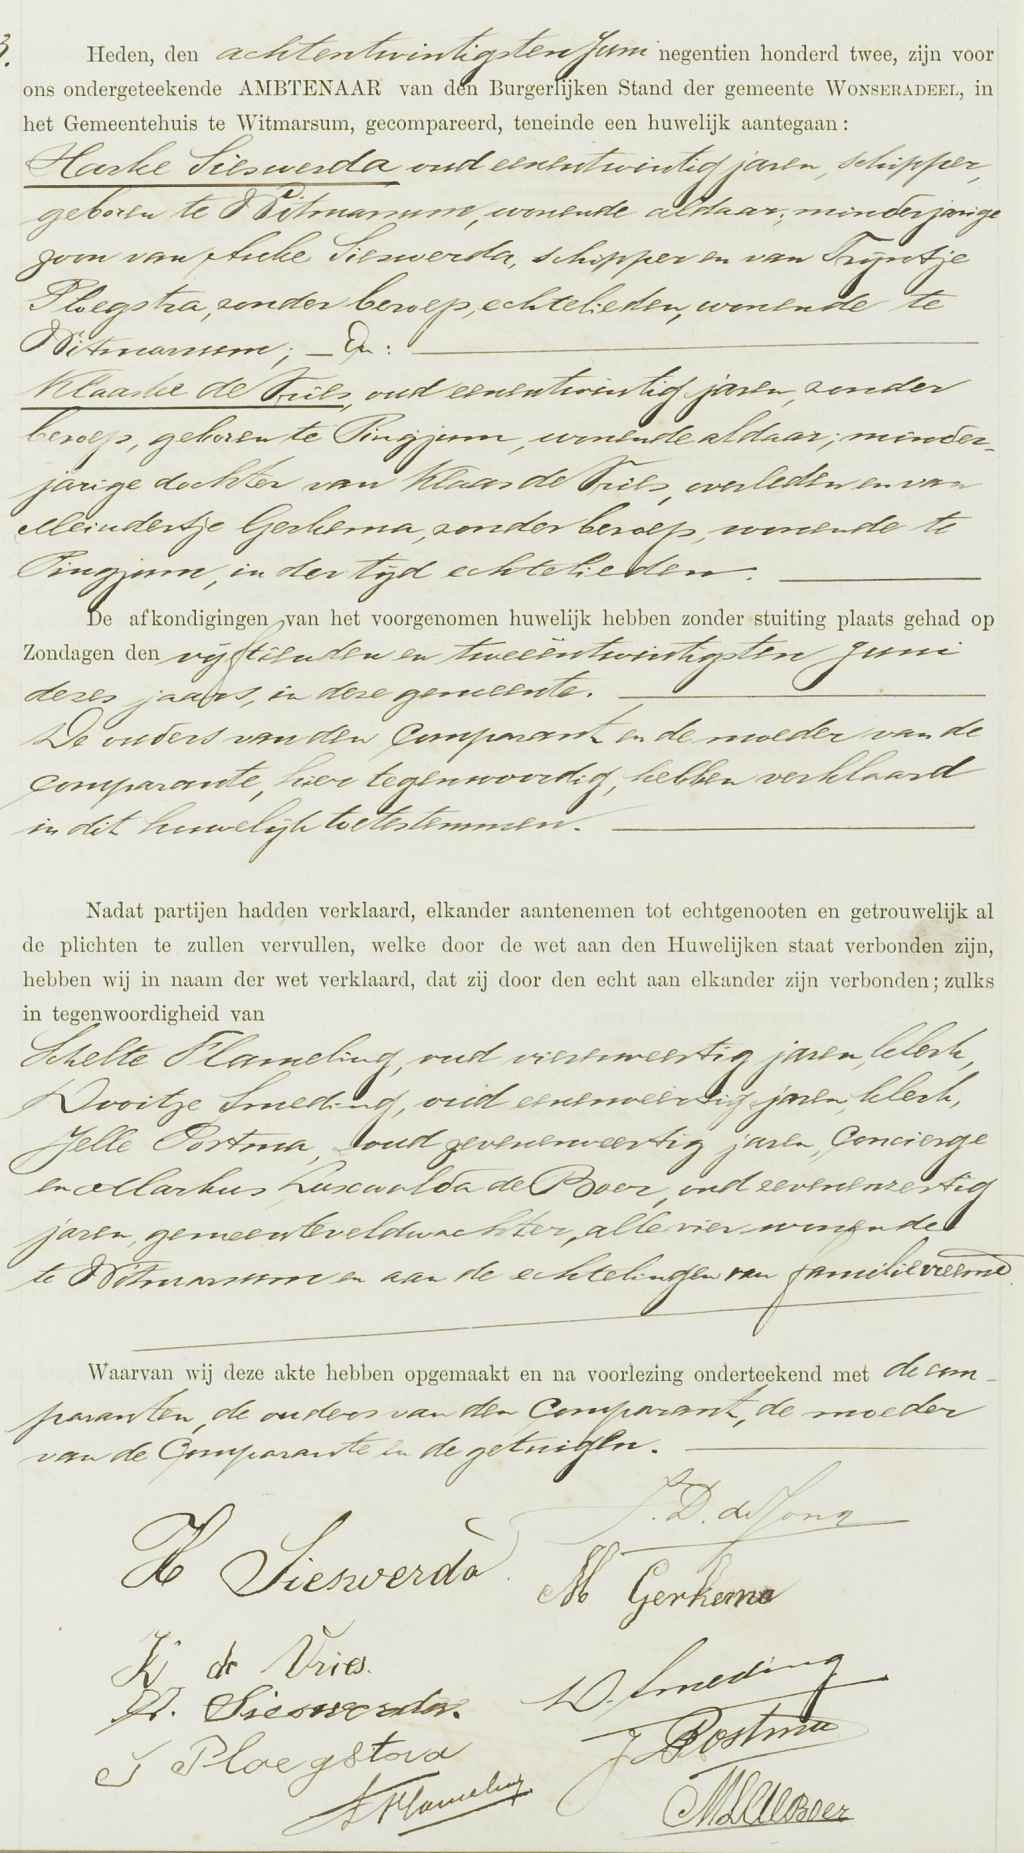 3.
Heden, den achtentwintigsten Juni negentien honderd twee, zijn voor
ons ondergeteekende AMBTENAAR van den Burgerlijken Stand der gemeente WONSERADEEL, in
het Gemeentehuis te Witmarsum, gecompareerd, teneinde een huwelijk aantegaan:
Harke Sieswerda oud eenentwintig jaren, schipper,
geboren te Witmarsum, wonende aldaar; minderjarige
zoon van Auke Sieswerda, schipper en van Trijntje
Ploegstra, zonder beroep, echtelieden, wonende te
Witmarsum; – En:
Klaaske de Vries, oud eenentwintig jaren, zonder
beroep, geboren te Pingjum, wonende aldaar; minder-
jarige dochter van Klaas de Vries, overleden en van
Meindertje Gerkema, zonder beroep, wonende te
Pingjum, in der tijd echtelieden.
De afkondigingen van het voorgenomen huwelijk hebben zonder stuiting plaats gehad op
Zondagen den vijftienden en tweeëntwintigsten Juni
dezes jaars, in deze gemeente.
De ouders van den Comparant en de moeder van de
Comparante, hier tegenwoordig, hebben verklaard
in dit huwelijk toetestemmen.
Nadat partijen hadden verklaard, elkander aantenemen tot echtgenooten en getrouwelijk al
de plichten te zullen vervullen, welke door de wet aan den Huwelijken staat verbonden zijn,
hebben wij in naam der wet verklaard, dat zij door den echt aan elkander zijn verbonden; zulks
in tegenwoordigheid van
Schelte Flameling, oud vierenveertig jaren, klerk,
Dooitze Smeding, oud eenenveertig jaren, klerk,
Jelle Postma, oud zevenenveertig jaren, Concierge
en Markus Luxwolda de Boer, oud zevenenzestig
jaren, gemeenteveldwachter, alle vier wonende
te Witmarsum en aan de echtelingen van familie vreemd.
Waarvan wij deze akte hebben opgemaakt en na voorlezing onderteekend met de com-
paranten, de ouders van den Comparant, de moeder
van de Comparante en de getuigen.
J. D. de Jong
H Sieswerda
M Gerkema
K de Vries.
D. Smeding
A. Sieswerda.
J Postma
T Ploegstra
S Flameling
M L de Boer